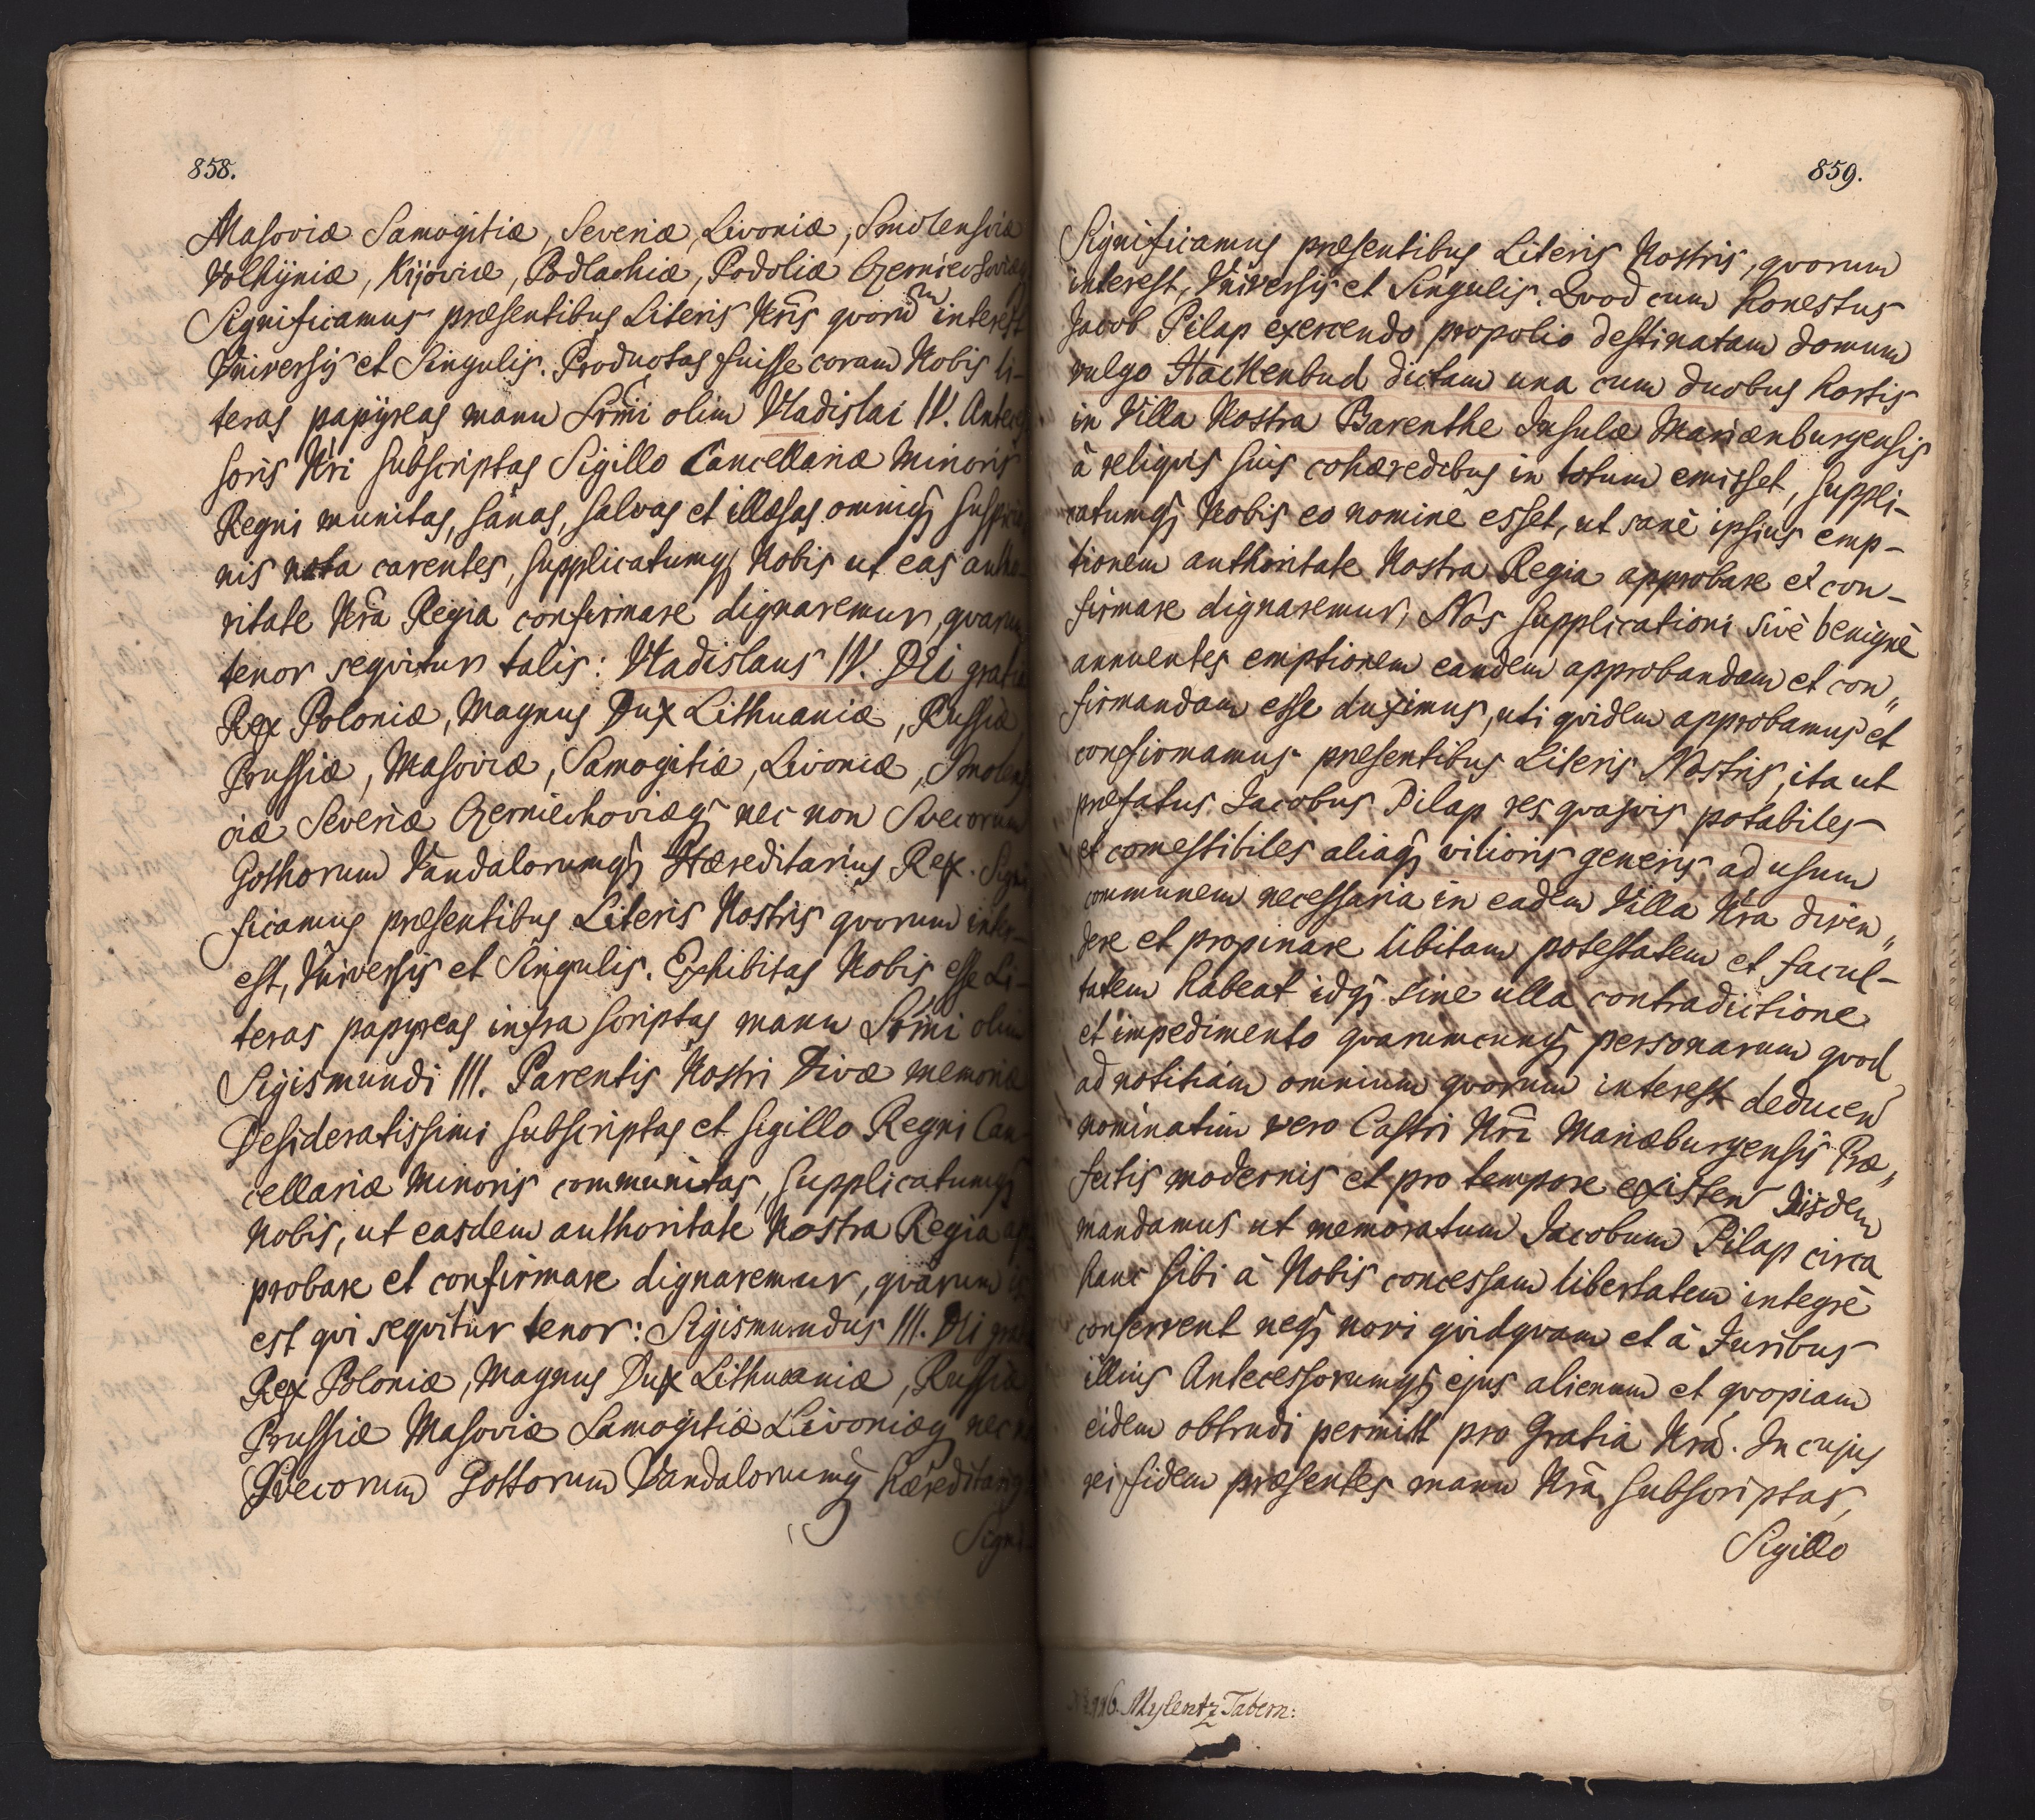 858.
Masoviæ Samogitiæ, Severiæ, Livoniæ, Smolensciæ
Volhÿniæ, Kijoviæ, Podlachiæ, Podoliæ Czerniechoviæq
Significamus præsentibus Literis Nris qvorum interest
Universis et Singulis. Productas fuisse coram Nobis li-
teras papÿreas manu Srmi olim Vladislai IV. Anteces
soris Nri subscriptas Sigillo Cancellariæ Minoris
Regni munitas, sanas, salvas et illæsas omniq suspicio
nis nota carentes, supplicatumq Nobis ut eas autho-
ritate Nra Regia confirmare dignaremur, qvarum
tenor seqvitur talis: Vladislaus IV. DEi gratia
Rex Poloniæ, Magnus Dux Lithuaniæ, Russiæ,
Prussiæ, Masoviæ, Samogitiæ, Livoniæ, Smolens
ciæ Severiæ Czerniechoviæq nec non Svecorum
Gothorum Vandalorumq Hæreditarius Rex. Signi
ficamus præsentibus Literis Nostris qvorum inter-
est, Universis et Singulis. Exhibitas Nobis esse Li-
teras papyreas infra scriptas manu Srmi olim
Sigismundi III. Parentis Nostri Divæ memoriæ
Desideratissimi subscriptas et sigillo Regni Can
cellariæ Minoris communitas, supplicatumq
Nobis, ut easdem authoritate Nostra Regia ap
probare et confirmare dignaremur, qvarum is
est qvi seqvitur tenor: Sigismundus III. DEi gratia
Rex Poloniæ, Magnus Dux Lithuaniæ, Russiæ
Prussiæ Masoviæ Samogitiæ Livoniæq nec n
Svecorum Gottorum Vandalorumq hæreditariq
Signi
859.
Significamus præsentibus Literis Nostris, qvorum
interest, Universis et Singulis. Qvod cum honestus
Jacob Pilap exercendo propolio destinatam domum
vulgo Hackenbud dictam una cum duobus hortis
in Villa Nostra Barenthe Insulæ Mariænburgensis
à reliqvis suis cohæredibus in totum emisset, suppli-
catumq Nobis eo nomine esset, ut sanè ipsius emp-
tionem authoritate Nostra Regia approbare et con-
firmare dignaremur, Nos supplicationi sivè benignè
annuentes emptionem eandem approbandam et con„
firmandam esse duximus, uti qvidem approbamus et
confirmamus præsentibus Literis Nostris, ita ut
præfatus Jacobus Pilap res qvasvis potabiles
et comestibiles aliaq vilioris generis ad usum
communem necessaria in eadem Villa Nra diven„
dere et propinare libitam potestatem et facul-
tatem habeat idq sine ulla contradictione
et impedimento qvarumcunq personarum qvod
ad notitiam omnium qvorum interest deducen
nominatim vero Castri Nri Mariæburgensis Præ„
fectis modernis et pro tempore existen iisdem
mandamus ut memoratum Jacobum Pilap circa
hanc sibi à Nobis concessam libertatem integrè
conservent neq novi qvidqvam et à Juribus
illius Antecessorumq ejus alienum et qvopiam
eidem obtrudi permitt pro Gratia Nra. In cujus
rei fidem præsentes manu Nra subscriptas,
Sigillo
226. Mylentz Tabern: